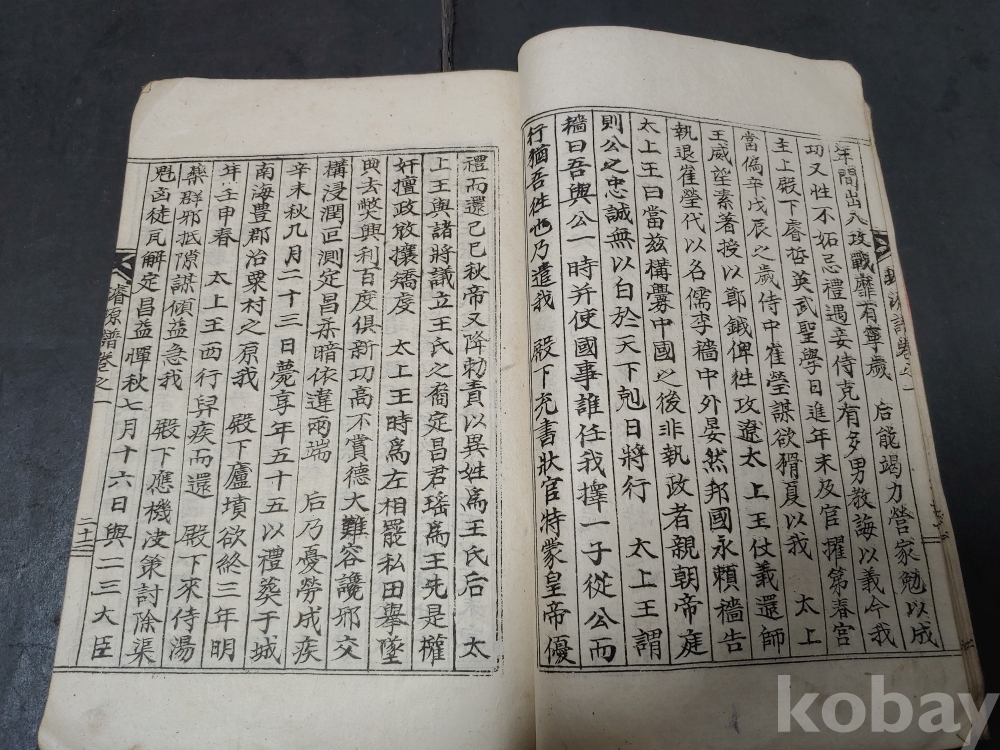 年間出入攻戰靡有寧歲 后能竭力營家勉以成
功又性不妬忌禮遇妾侍克有多男教誨以義今我
主上殿下睿哲英武聖學日進年未及官擢第春官
當偽辛戊辰之歲侍中崔瑩謀欲猾夏以我 太上
王威望素著授以鄭鉞俾徃攻遼太上王仗義還師
執退崔瑩代以名儒李穡中外晏然邦國永頼穡告
太上王曰當兹構釁中國之後非執政者親朝帝庭
則公之忠誠無以白於天下剋日將行 太上王謂
穡曰吾與公一時并使國事誰任我擇一子從公而
行猶吾徃也乃遣我 殿下充書狀官特蒙皇帝優
禮而還己巳秋帝又降勑責以異姓為王氏后 太
上王與諸將議立王氏之裔定昌君瑤為王先是權
奸擅政敗攘矯虔 太上王時爲左相罷私田舉墜
典去弊興利百度俱新功高不賞德大難容讒邪交
構浸潤叵測定昌亦暗依違兩端 后乃憂勞成疾
辛未秋九月二十三日薨享年五十五以禮葬于城
南海豊郡治粟村之原我 殿下廬墳欲終三年明
年壬申春 太上王西行舁疾而還 殿下來侍湯
藥群邪抵隙謀傾益急我 殿下應機决策討除渠
魁凶徒瓦解定昌益惲秋七月十六日與二三大臣
璿源譜卷之一
二十
kobay